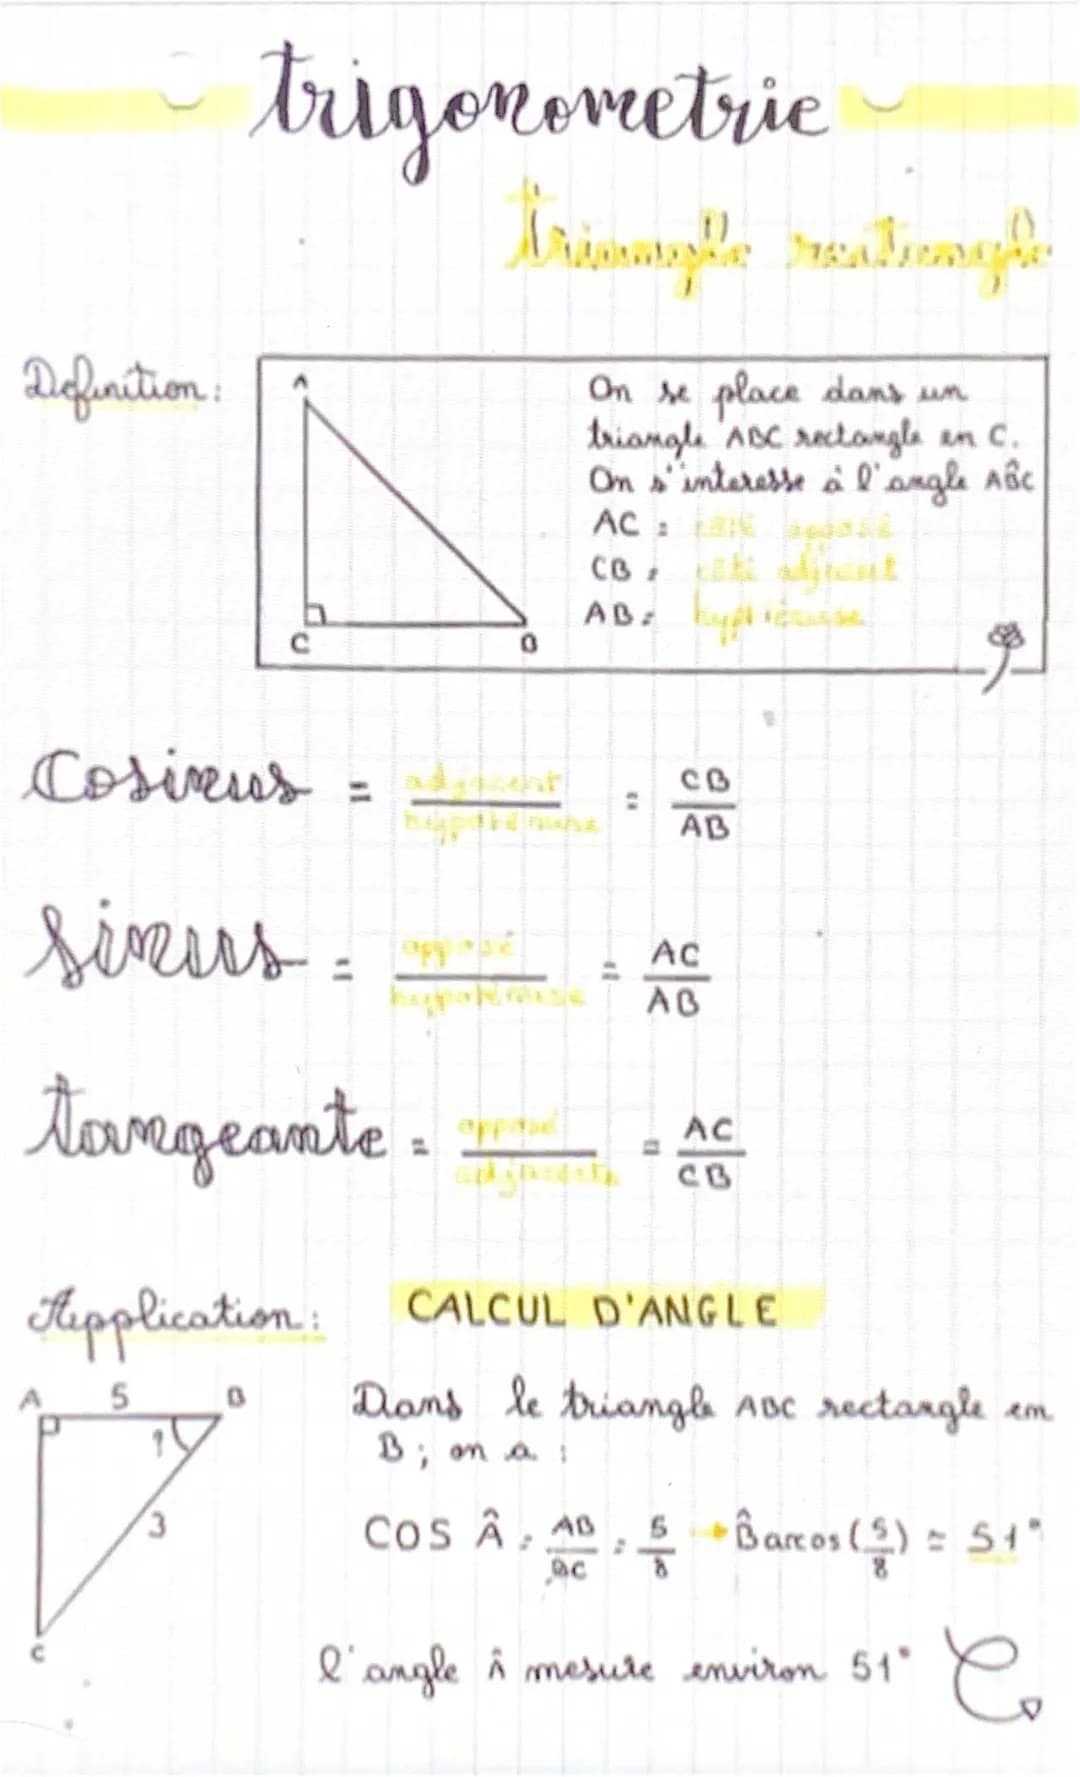 trigonometrie
triangle rectangle
Definition:
A
C
B
On se place dans un
triangle ABC rectangle en C.
On s'interesse à l'angle ABC
AC = côté opposé
CB = côté adjacent
AB = hypoténuse
Cosinus = adjacent / hypoténuse = CB / AB
sinus = opposé / hypoténuse = AC / AB
tangeante = opposé / adjacente = AC / CB
Application: CALCUL D'ANGLE
A 5 B
?
3
C
Dans le triangle ABC rectangle en
B ; on a :
COS Â = AB / BC = 5 / 8 → B̂ arcos (5/8) = 51°
l'angle Â mesure environ 51°